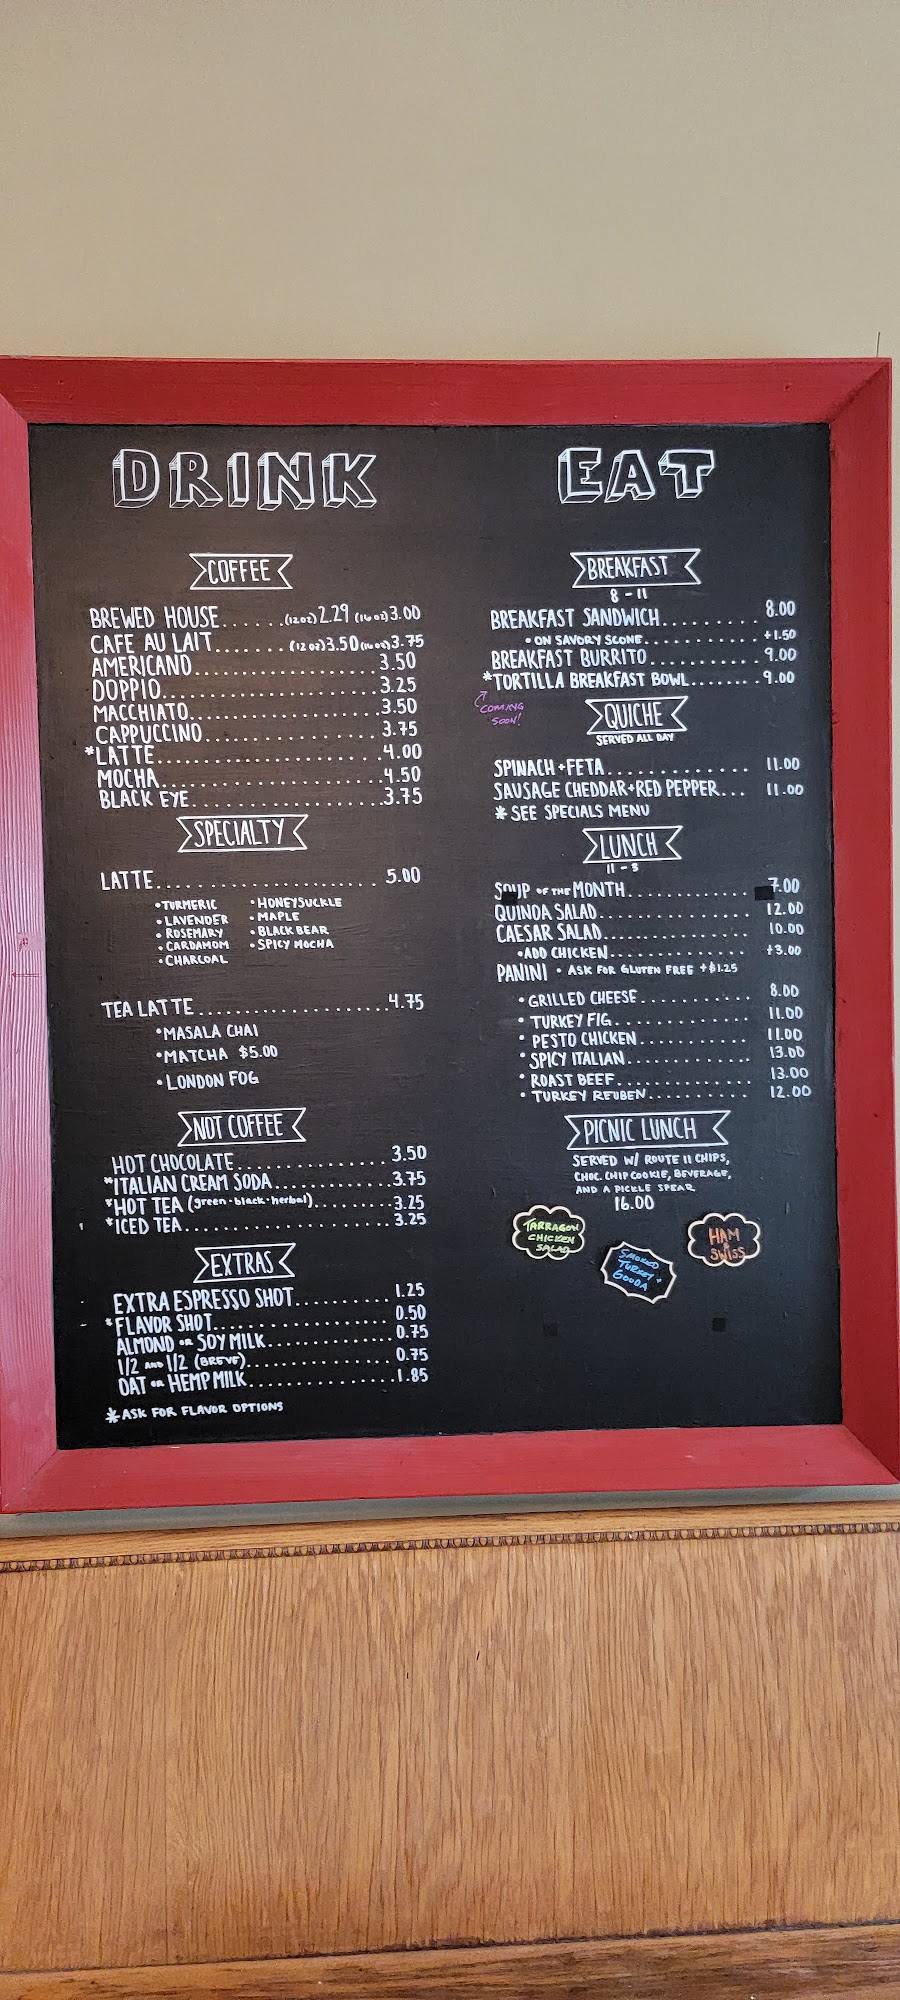 DRINK
COFFEE
BREWED HOUSE.......(12oz)2.29 (16oz)3.00
CAFE AU LAIT.......(12oz)3.50(16oz)3.75
AMERICANO....................3.50
DOPPIO.......................3.25
MACCHIATO....................3.50
CAPPUCCINO...................3.75
*LATTE.......................4.00
MOCHA........................4.50
BLACK EYE....................3.75
SPECIALTY
LATTE........................5.00
•TURMERIC •HONEYSUCKLE
•LAVENDER •MAPLE
•ROSEMARY •BLACK BEAR
•CARDAMOM •SPICY MOCHA
•CHARCOAL
TEA LATTE....................4.75
•MASALA CHAI
•MATCHA $5.00
•LONDON FOG
NOT COFFEE
HOT CHOCOLATE................3.50
*ITALIAN CREAM SODA..........3.75
*HOT TEA (green•black•herbal).......3.25
*ICED TEA....................3.25
EXTRAS
EXTRA ESPRESSO SHOT..........1.25
*FLAVOR SHOT.................0.50
ALMOND OR SOY MILK...........0.75
1/2 AND 1/2 (BREVE)..........0.75
OAT OR HEMP MILK.............1.85
*ASK FOR FLAVOR OPTIONS
EAT
BREAKFAST
8-11
BREAKFAST SANDWICH.......... 8.00
•ON SAVORY SCONE............ +1.50
BREAKFAST BURRITO........... 9.00
*TORTILLA BREAKFAST BOWL........ 9.00
COMING
SOON!
QUICHE
SERVED ALL DAY
SPINACH+FETA............. 11.00
SAUSAGE CHEDDAR+RED PEPPER... 11.00
* SEE SPECIALS MENU
LUNCH
11-3
SOUP OF THE MONTH........... 7.00
QUINOA SALAD.............. 12.00
CAESAR SALAD.............. 10.00
•ADD CHICKEN.............. +3.00
PANINI • ASK FOR GLUTEN FREE +$1.25
•GRILLED CHEESE........... 8.00
•TURKEY FIG............... 11.00
•PESTO CHICKEN............ 11.00
•SPICY ITALIAN............ 13.00
•ROAST BEEF............... 13.00
•TURKEY REUBEN............ 12.00
PICNIC LUNCH
SERVED W/ ROUTE 11 CHIPS,
CHOC. CHIP COOKIE, BEVERAGE,
AND A PICKLE SPEAR
16.00
TARRAGON
CHICKEN
SALAD
SMOKED
TURKEY +
GOUDA
HAM
&
SWISS